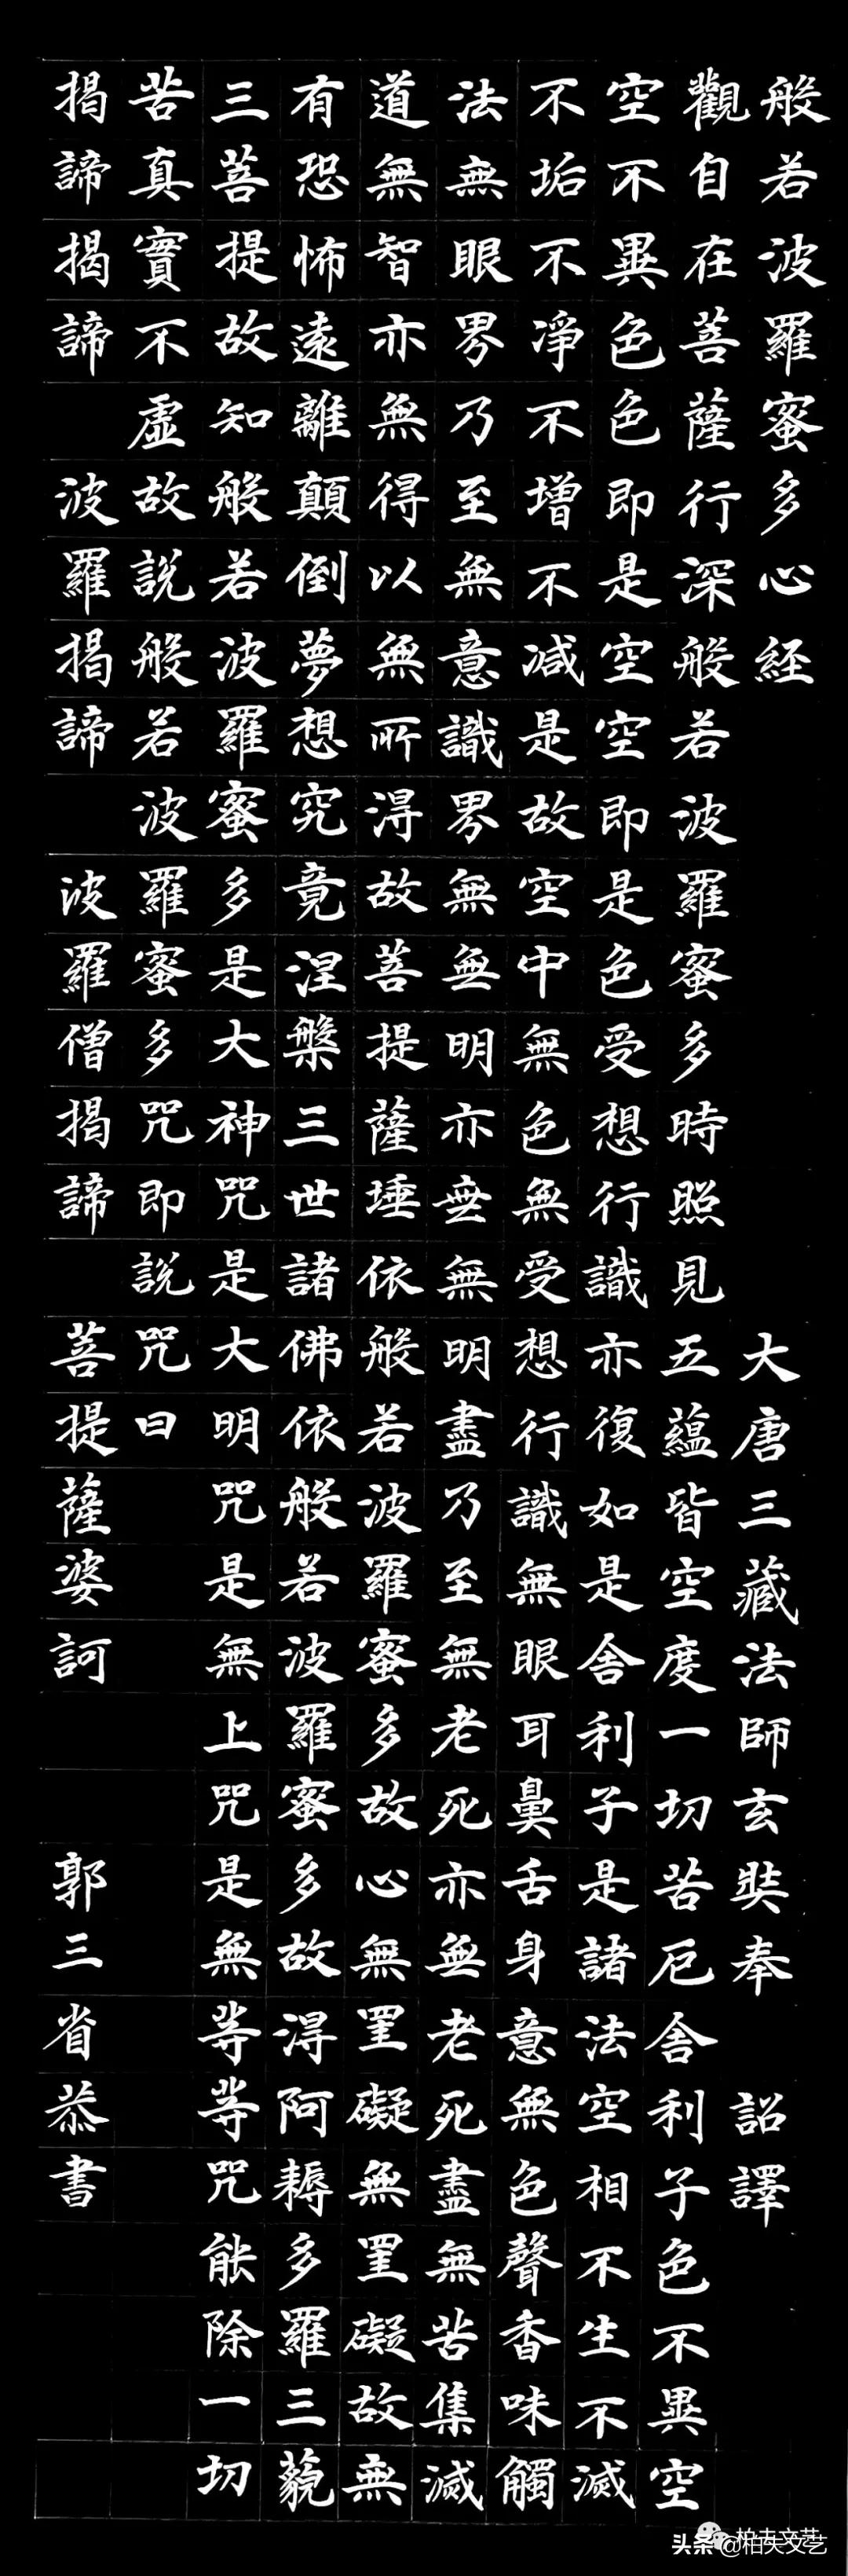 般若波羅蜜多心経 大唐三藏法師玄奘奉 詔譯
觀自在菩薩行深般若波羅蜜多時照見五蘊皆空度一切苦厄舍利子色不異空
空不異色色即是空空即是色受想行識亦復如是舍利子是諸法空相不生不滅
不垢不淨不增不減是故空中無色無受想行識無眼耳鼻舌身意無色聲香味觸
法無眼界乃至無意識界無無明亦無無明盡乃至無老死亦無老死盡無苦集滅
道無智亦無得以無所得故菩提薩埵依般若波羅蜜多故心無罣礙無罣礙故無
有恐怖遠離顛倒夢想究竟涅槃三世諸佛依般若波羅蜜多故得阿耨多羅三藐
三菩提故知般若波羅蜜多是大神咒是大明咒是無上咒是無等等咒能除一切
苦真實不虛故說般若波羅蜜多咒即說咒曰
揭諦揭諦 波羅揭諦 波羅僧揭諦 菩提薩婆訶 郭三省恭書
柏夫文艺
头条@柏夫文艺